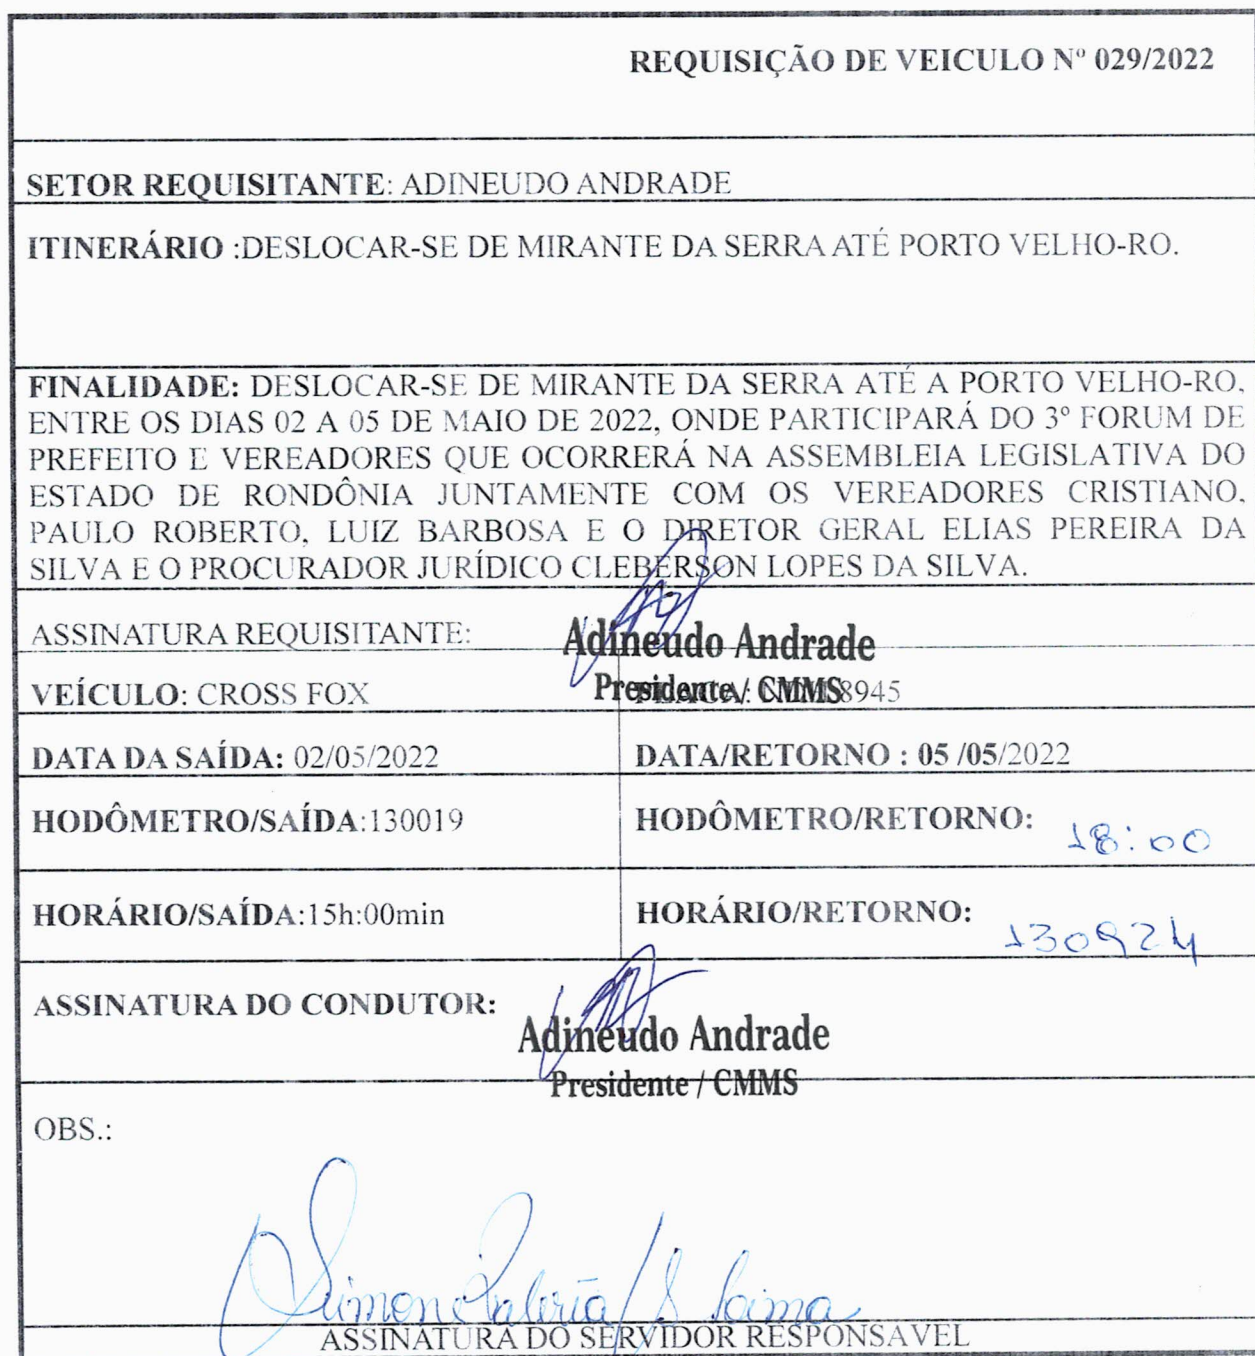 REQUISIÇÃO DE VEICULO Nº 029/2022
SETOR REQUISITANTE: ADINEUDO ANDRADE
ITINERÁRIO :DESLOCAR-SE DE MIRANTE DA SERRA ATÉ PORTO VELHO-RO.
FINALIDADE: DESLOCAR-SE DE MIRANTE DA SERRA ATÉ A PORTO VELHO-RO,
ENTRE OS DIAS 02 A 05 DE MAIO DE 2022, ONDE PARTICIPARÁ DO 3º FORUM DE
PREFEITO E VEREADORES QUE OCORRERÁ NA ASSEMBLEIA LEGISLATIVA DO
ESTADO DE RONDÔNIA JUNTAMENTE COM OS VEREADORES CRISTIANO,
PAULO ROBERTO, LUIZ BARBOSA E O DIRETOR GERAL ELIAS PEREIRA DA
SILVA E O PROCURADOR JURÍDICO CLEBERSON LOPES DA SILVA.
ASSINATURA REQUISITANTE: Adineudo Andrade
Presidente / CMMS
VEÍCULO: CROSS FOX 8945
DATA DA SAÍDA: 02/05/2022 DATA/RETORNO : 05 /05/2022
HODÔMETRO/SAÍDA:130019 HODÔMETRO/RETORNO: 18:00
HORÁRIO/SAÍDA:15h:00min HORÁRIO/RETORNO: 130924
ASSINATURA DO CONDUTOR:
Adineudo Andrade
Presidente / CMMS
OBS.:
ASSINATURA DO SERVIDOR RESPONSAVEL